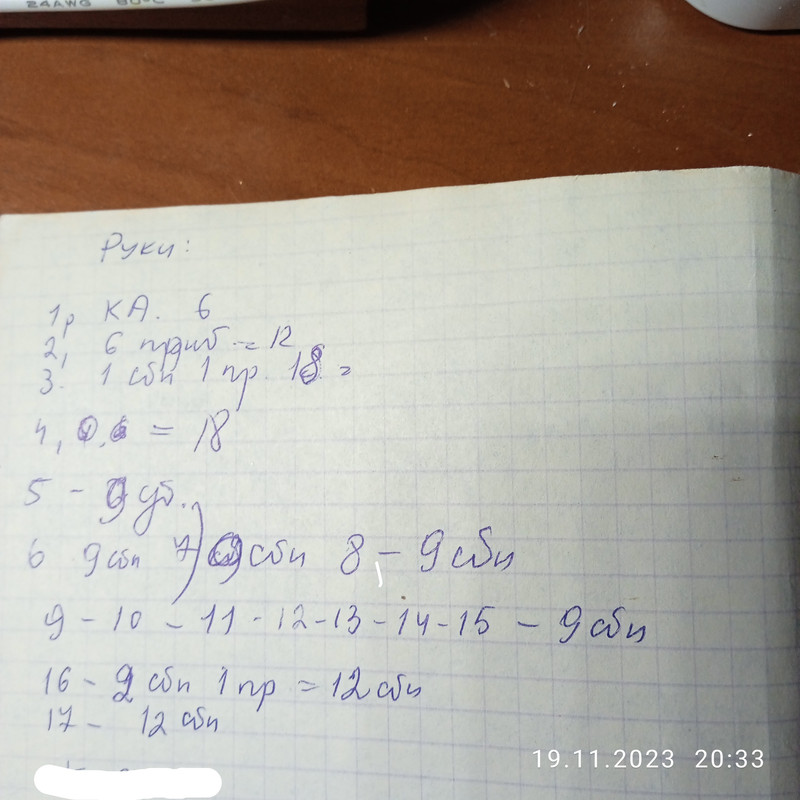 24AWG 80°C
Руки:
1р КА. 6
2, 6 приб = 12
3. 1 сбн 1 пр. 18 =
4, = 18
5 - 9 уб.
6 9 сбн 7) 9 сбн 8 - 9 сбн
9 - 10 - 11 - 12 - 13 - 14 - 15 - 9 сбн
16 - 2 сбн 1 пр = 12 сбн
17 - 12 сбн
19.11.2023 20:33